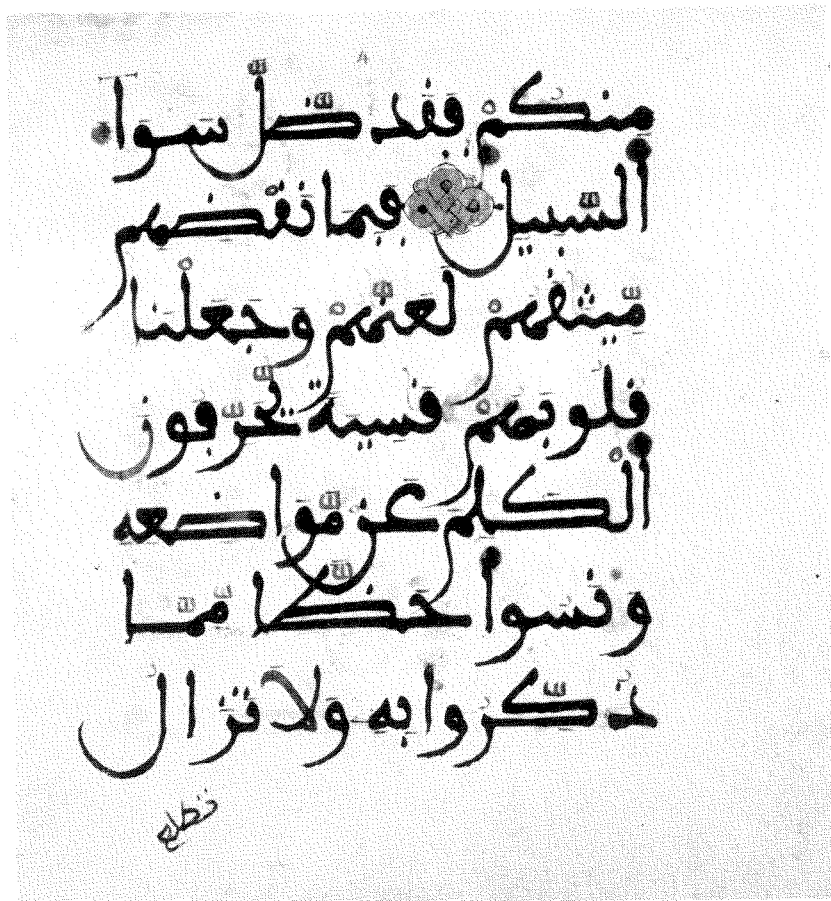 مِنكُمْ فَقَد ضَّلَّ سَوَآءَ
اَ۬لسَّبِيلِ فَبِمَا نَقْضِهِم
مِّيثَٰقَهُمْ لَعَنَّٰهُمْ وَجَعَلْنَا
قُلُوبَهُمْ قَٰسِيَةٗ يُحَرِّفُونَ
اَ۬لْكَلِمَ عَن مَّوَاضِعِهِۦ
وَنَسُواْ حَظّٗا مِّمَّا
ذُكِّرُواْ بِهِۦ وَلَا تَزَالُ
تطلع